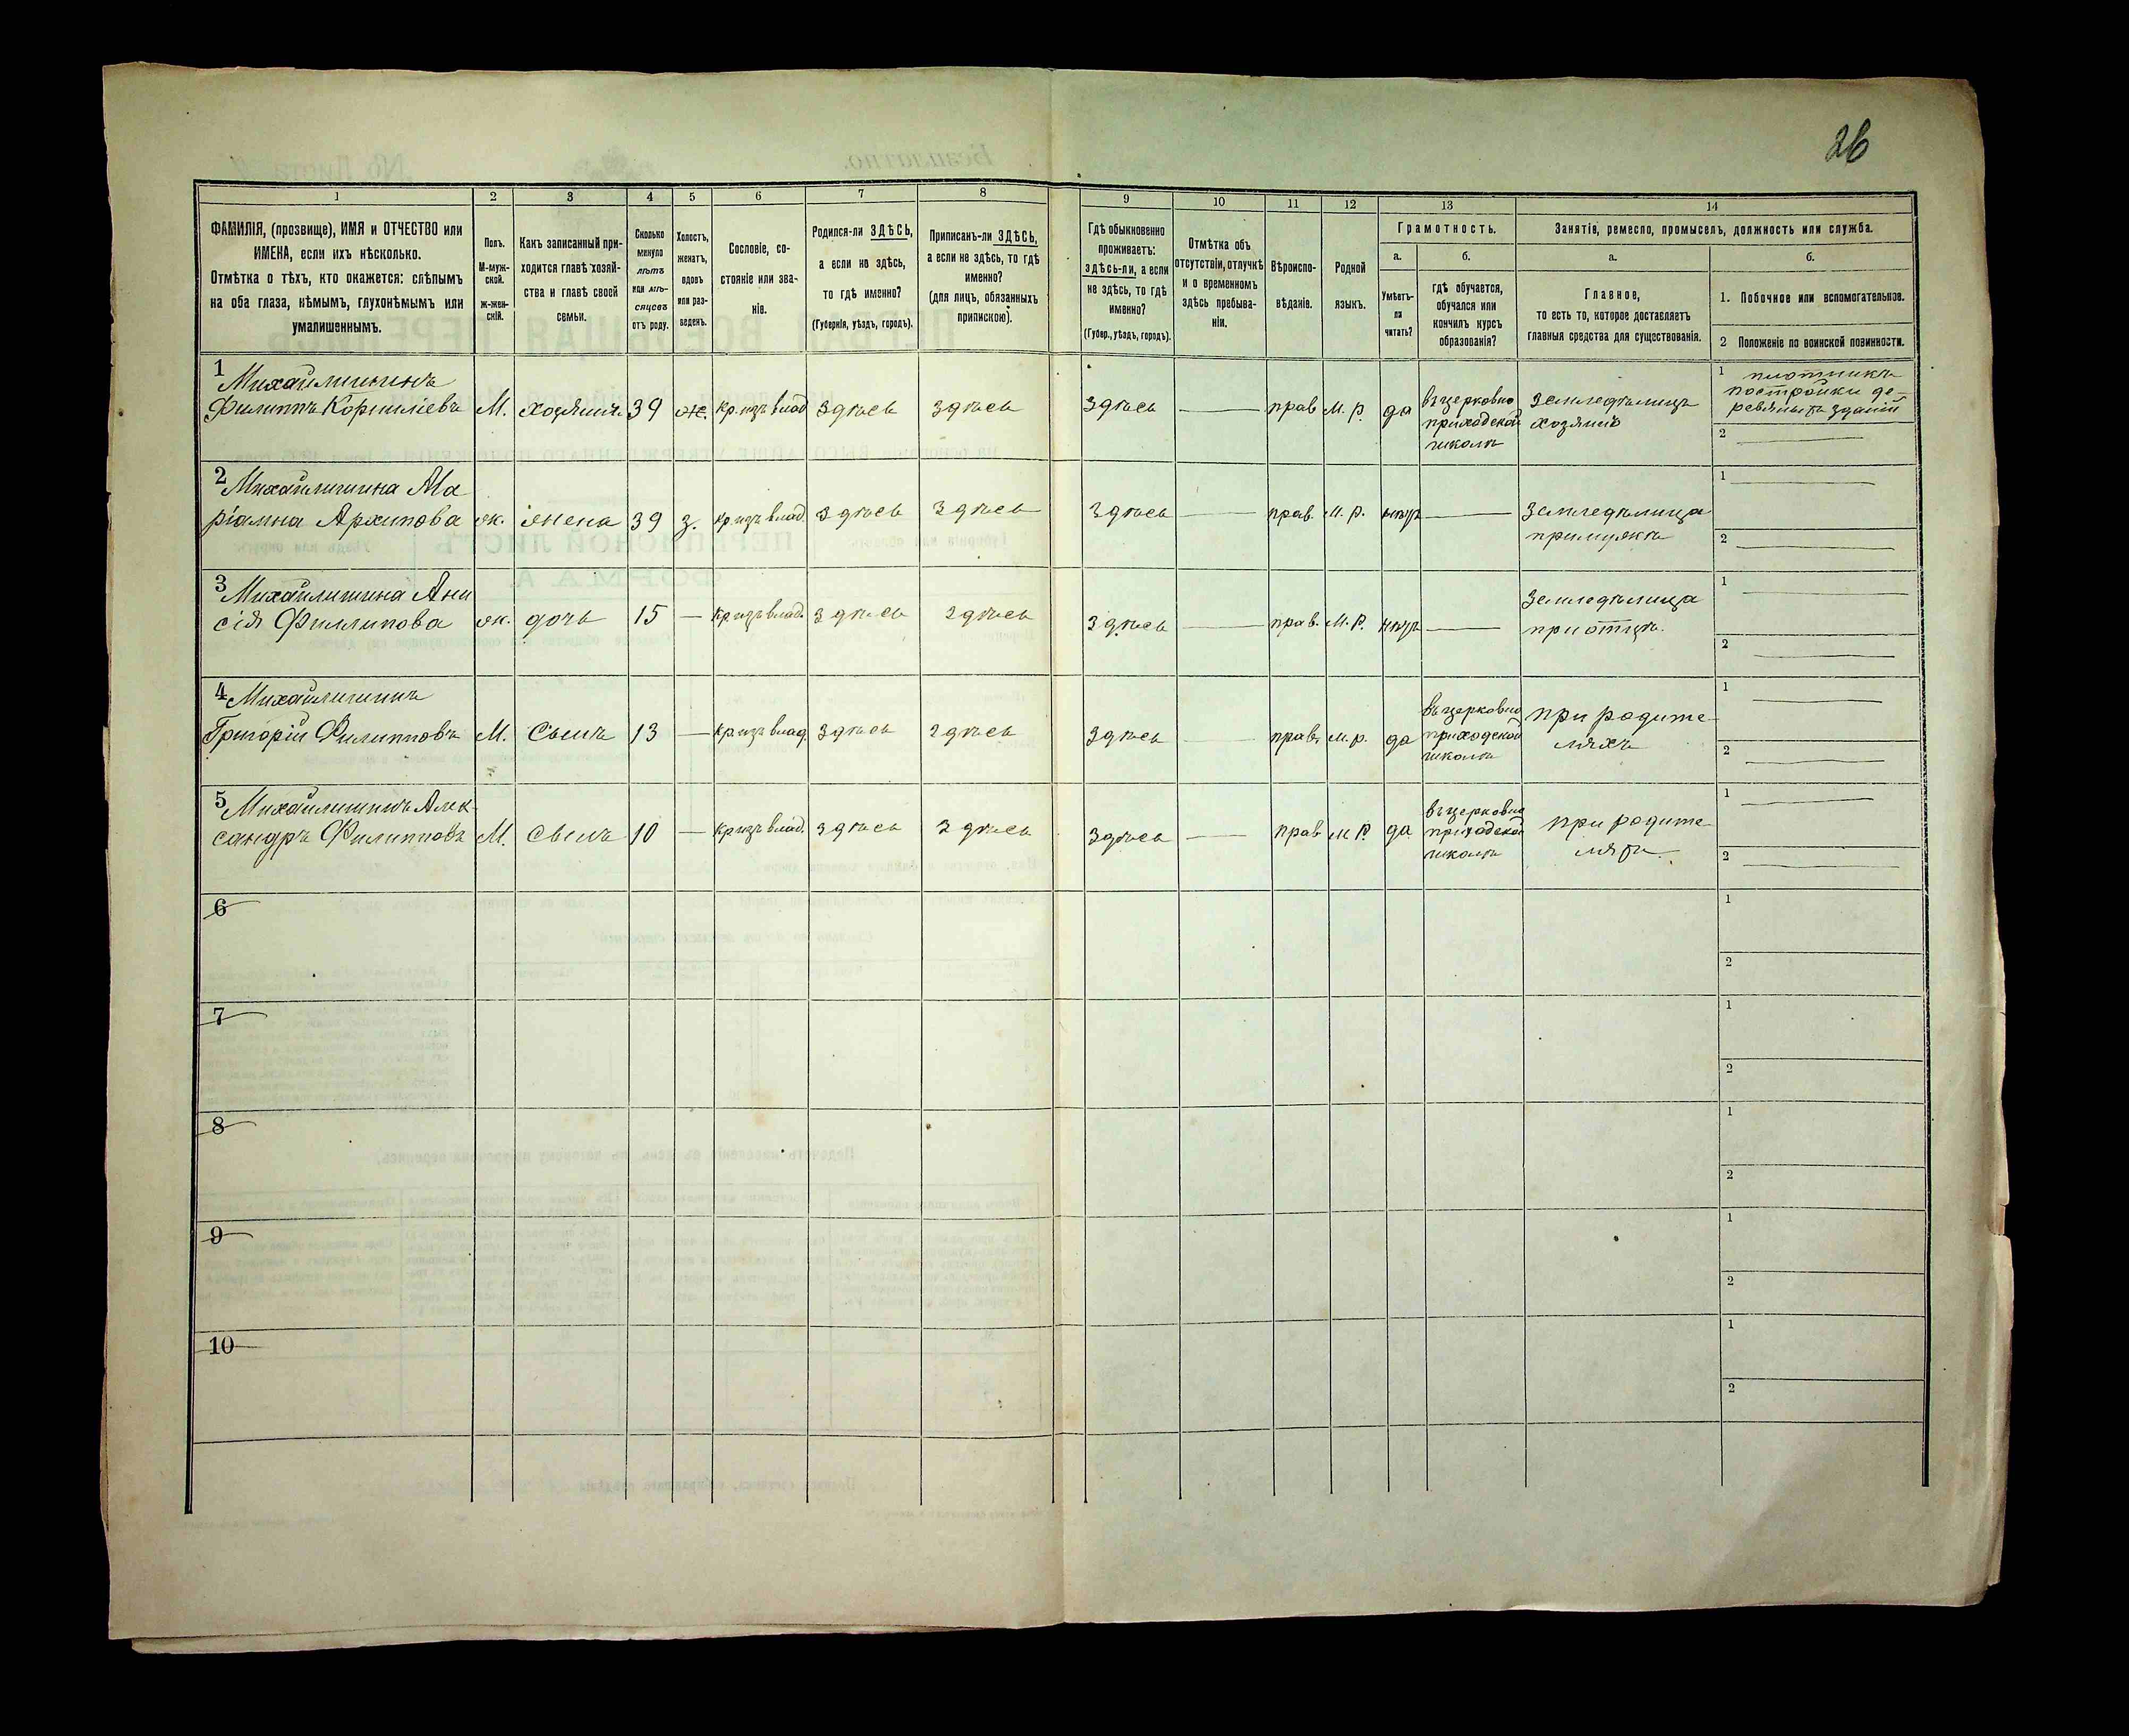 26
1 2 3 4 5 6 7 8 9 10 11 12 13 14
ФАМИЛІЯ, (прозвище), ИМЯ и ОТЧЕСТВО или
ИМЕНА, если ихъ нѣсколько.
Отмѣтка о тѣхъ, кто окажется: слѣпымъ
на оба глаза, нѣмымъ, глухонѣмымъ или
умалишеннымъ.
Полъ.
М-муж-
ской.
ж-жен-
скій.
Какъ записанный при-
ходится главѣ хозяй-
ства и главѣ своей
семьи.
Сколько
минуло
лѣтъ
или мѣ-
сяцевъ
отъ роду.
Холостъ,
женатъ,
вдовъ
или раз-
веденъ.
Сословіе, со-
стояніе или зва-
ніе.
Родился-ли ЗДѢСЬ,
а если не здѣсь,
то гдѣ именно?
(Губернія, уѣздъ, городъ).
Приписанъ-ли ЗДѢСЬ,
а если не здѣсь, то гдѣ
именно?
(для лицъ, обязанныхъ
припискою).
Гдѣ обыкновенно
проживаетъ:
здѣсь-ли, а если
не здѣсь, то гдѣ
именно?
(Губер., уѣздъ, городъ).
Отмѣтка объ
отсутствіи, отлучкѣ
и о временномъ
здѣсь пребыва-
ніи.
Вѣроиспо-
вѣданіе.
Родной
языкъ.
Грамотность.
а.
Умѣетъ-
ли
читать?
б.
гдѣ обучается,
обучался или
кончилъ курсъ
образованія?
Занятія, ремесло, промыселъ, должность или служба.
а.
Главное,
то есть то, которое доставляетъ
главныя средства для существованія.
б.
1. Побочное или вспомогательное.
2 Положеніе по воинской повинности.
1 Михайлишинъ
Филиппъ Корниліевъ М. хозяинъ 39 ж. кр. изъ влад здѣсь здѣсь здѣсь — прав м. р. да
въ церковно
приходской
школѣ
земледѣлецъ
хозяинъ
1 плотникъ
постройки де-
ревяныхъ зданій
2 —
2 Михайлишина Ма
ріамна Архипова ж. жена 39 з. кр. изъ влад. здѣсь здѣсь здѣсь — прав. м. р. нѣтъ —
земледѣлица
при мужѣ
1 —
2 —
3 Михайлишина Ани
сія Филипова ж. дочь 15 — кр изъ влад. здѣсь здѣсь здѣсь — прав. м. р. нѣтъ —
земледѣлица
при отцѣ.
1 —
2 —
4 Михайлишинъ
Григорій Филипповъ М. сынъ 13 — кр изъ влад. здѣсь здѣсь здѣсь — прав. м. р. да
въ церковно
приходской
школѣ
при родите-
ляхъ
1 —
2 —
5 Михайлишинъ Алек-
сандръ Филипповъ М. сынъ 10 — кр изъ влад. здѣсь здѣсь здѣсь — прав м р. да
въ церковно
приходской
школѣ
при родите-
ляхъ.
1 —
2 —
6
1
2
7
1
2
8
1
2
9
1
2
10
1
2